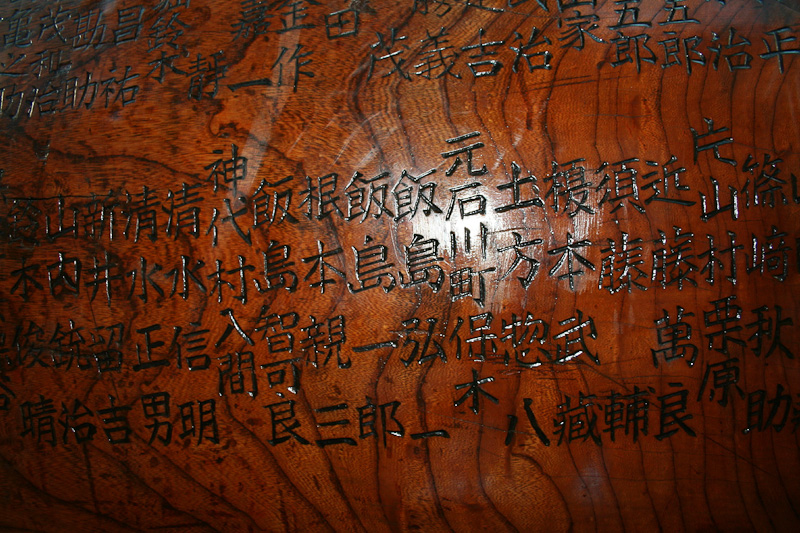 平
治
五郎
五郎
治
吉
義
茂
田
作
一
靜
昌祐
勘助
茂和治
亀之助
篠崎秋助
片山村栗原
近藤萬良
須藤輔
榎本武藏
土方惣八
元石川町保木
飯島弘一
飯島一郎
根本親三
飯島良
神代村入間
清水信明
清水正男
新井留吉
山内銃治
木俊晴